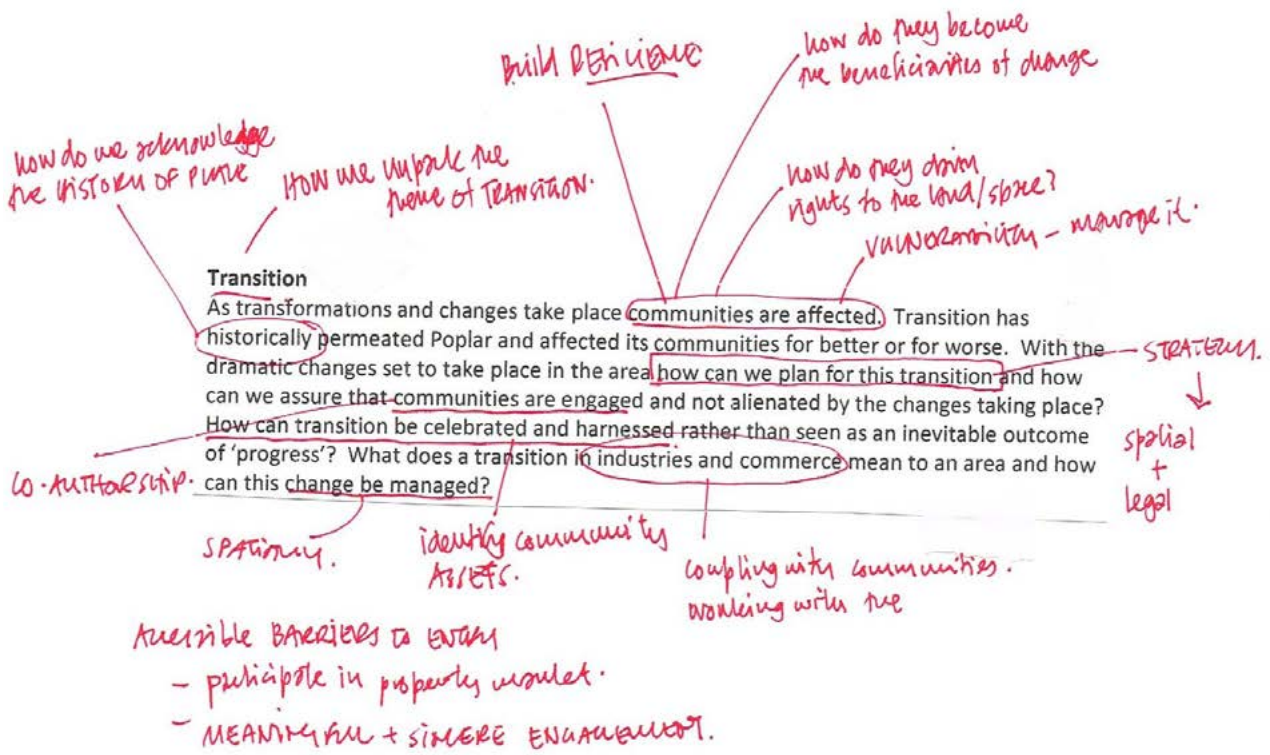 Build RESILIENCE
how do they become
the beneficiaries of change
how do we acknowledge
the HISTORY OF PLACE
HOW we unpack the
theme of TRANSITION.
how do they claim
rights to the land/space?
VULNERABILITY – manage it.
Transition
As transformations and changes take place communities are affected. Transition has
historically permeated Poplar and affected its communities for better or for worse. With the
dramatic changes set to take place in the area how can we plan for this transition and how
can we assure that communities are engaged and not alienated by the changes taking place?
How can transition be celebrated and harnessed rather than seen as an inevitable outcome
of 'progress'? What does a transition in industries and commerce mean to an area and how
can this change be managed?
STRATEGY.
spatial
+
legal
CO-AUTHORSHIP.
SPATIALLY.
identify community
ASSETS.
coupling with communities.
working with the
Accessible BARRIERS TO ENTRY
- participate in property market.
- MEANINGFUL + SINCERE ENGAGEMENT.